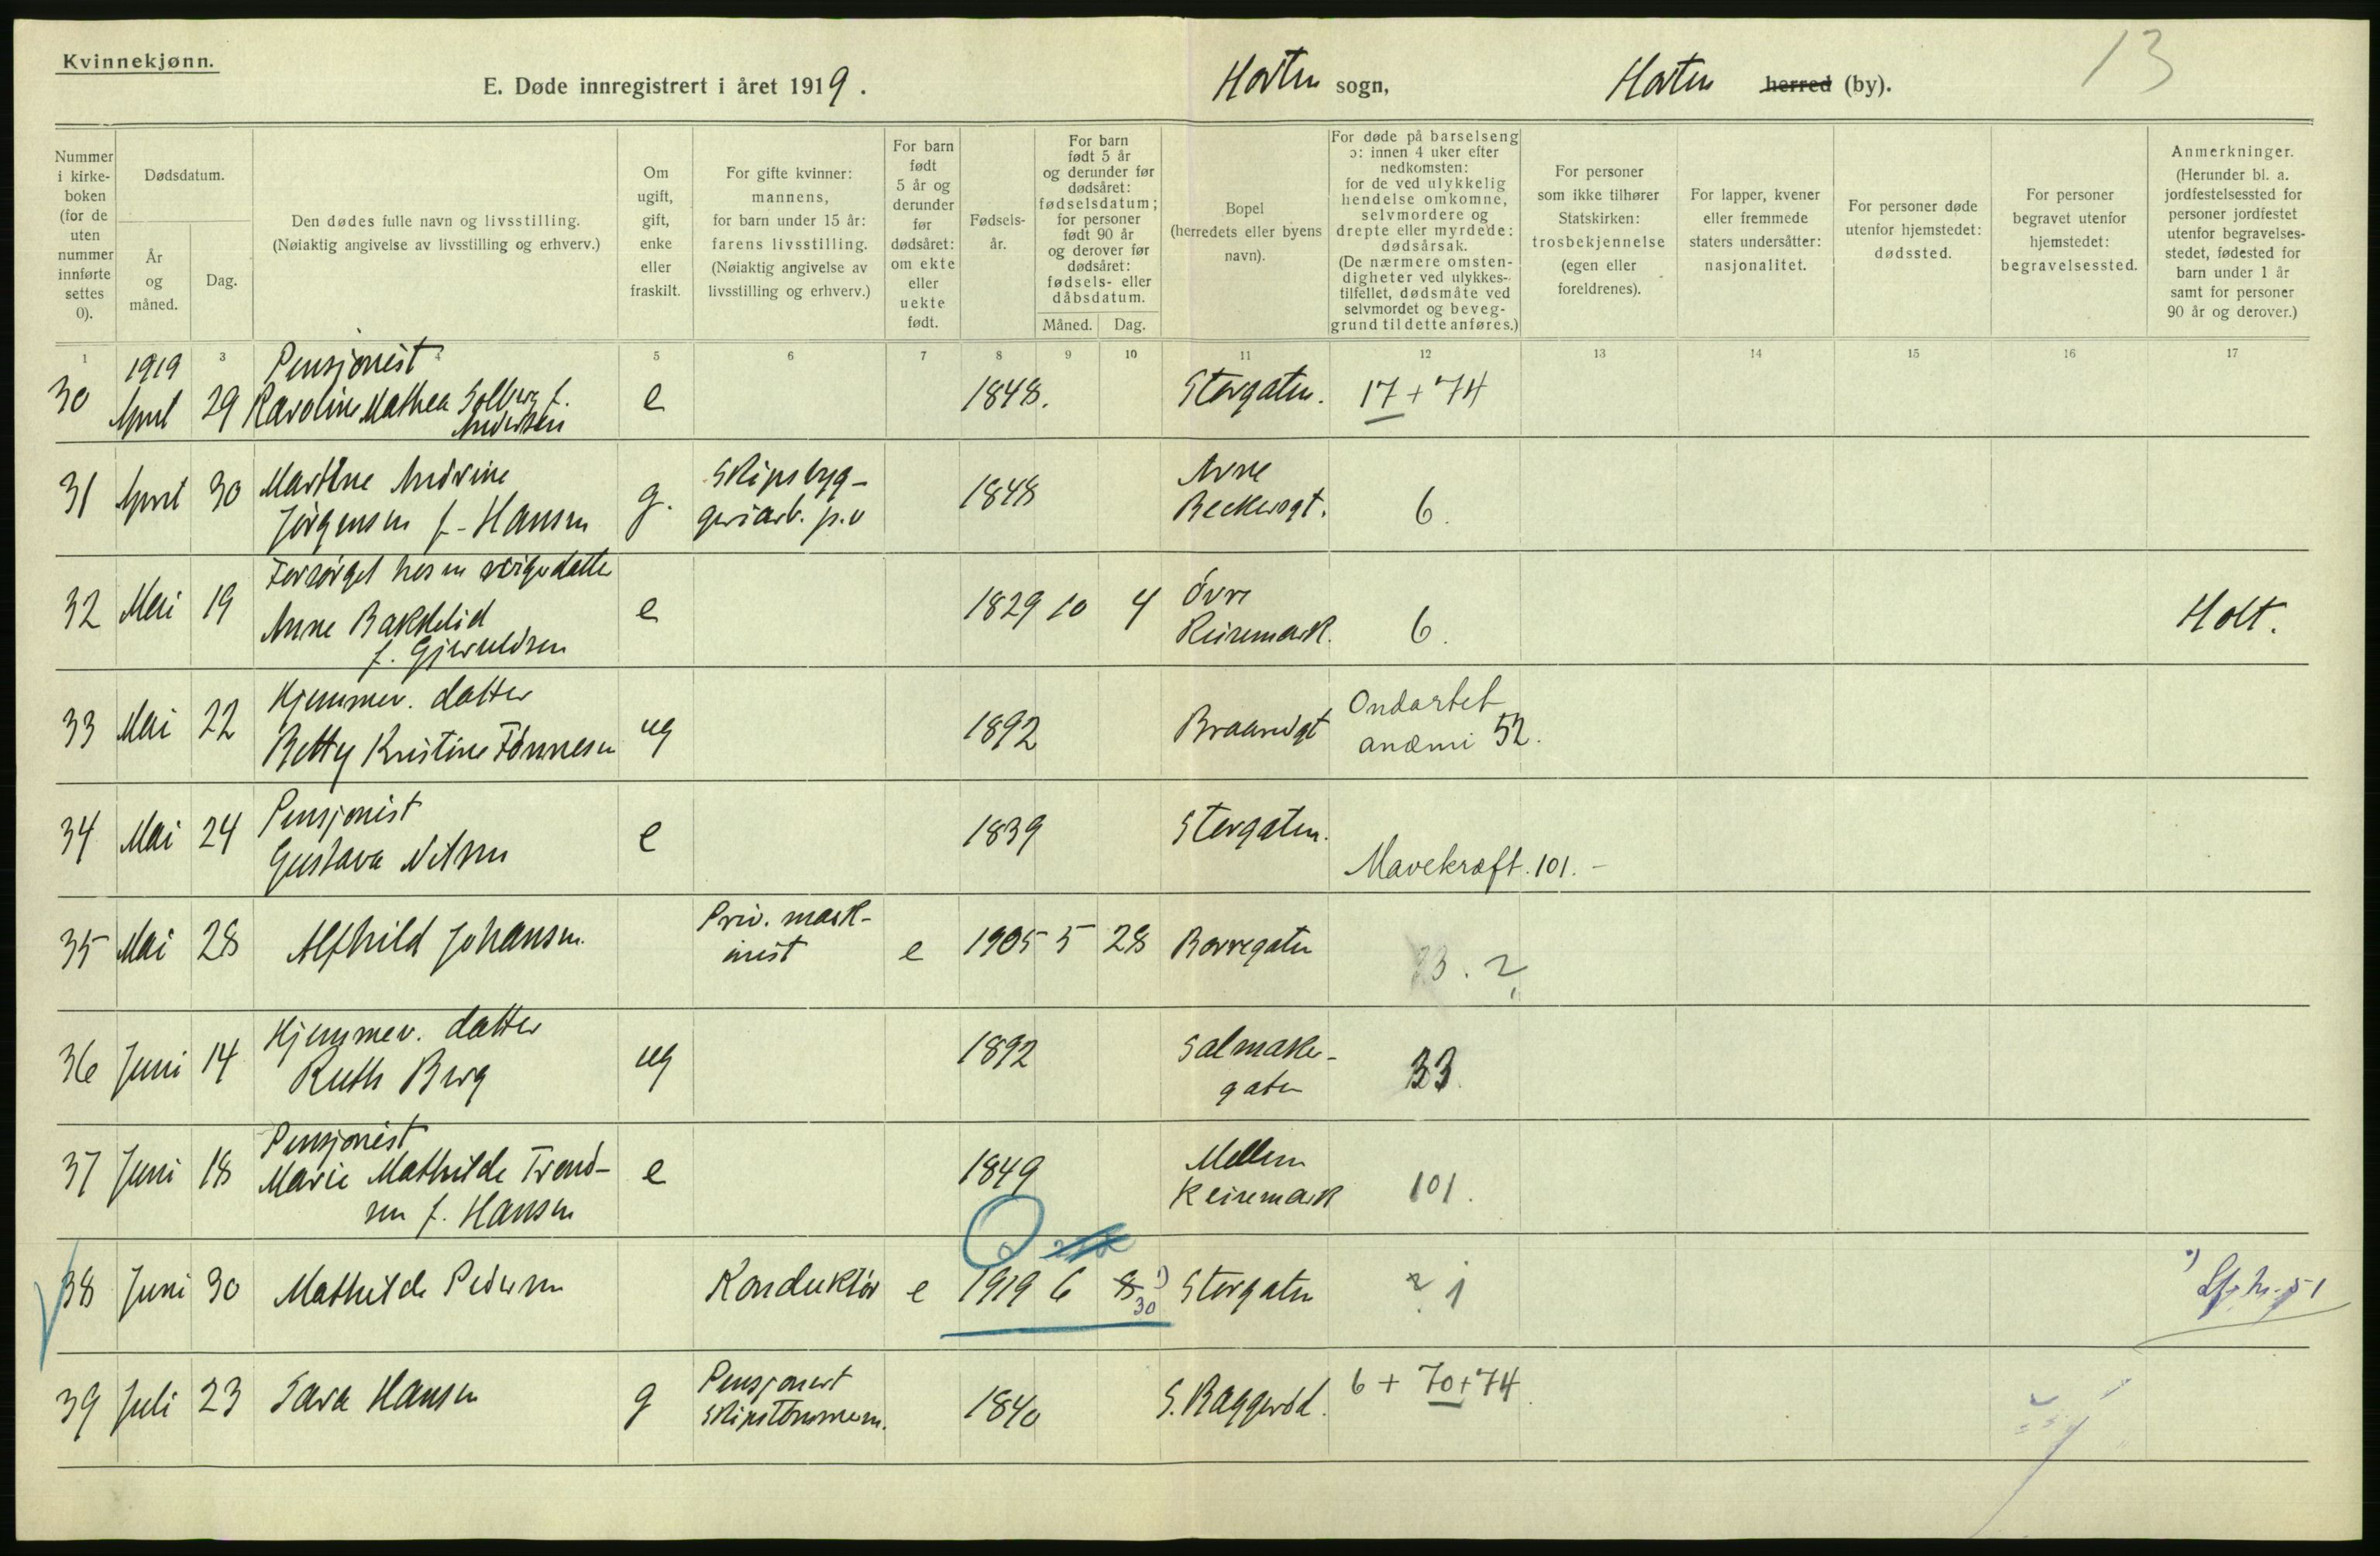 Kvinnekjønn.
E. Døde innregistrert i året 1919.
Horten sogn,
Horten herred (by).
13
Nummer
i kirke-
boken
(for de
uten
nummer
innførte
settes
0).
Dødsdatum.
År
og
måned.
Dag.
Den dødes fulle navn og livsstilling.
(Nøiaktig angivelse av livsstilling og erhverv.)
Om
ugift,
gift,
enke
eller
fraskilt.
For gifte kvinner:
mannens,
for barn under 15 år:
farens livsstilling.
(Nøiaktig angivelse av
livsstilling og erhverv.)
For barn
født
5 år og
derunder
før
dødsåret:
om ekte
eller
uekte
født.
Fødsels-
år.
For barn
født 5 år
og derunder før
dødsåret:
fødselsdatum;
for personer
født 90 år
og derover før
dødsåret:
fødsels- eller
dåbsdatum.
Måned.
Dag.
Bopel
(herredets eller byens
navn).
For døde på barselseng
ɔ: innen 4 uker efter
nedkomsten:
for de ved ulykkelig
hendelse omkomne,
selvmordere og
drepte eller myrdede:
dødsårsak.
(De nærmere omsten-
digheter ved ulykkes-
tilfellet, dødsmåte ved
selvmordet og beveg-
grund til dette anføres.)
For personer
som ikke tilhører
Statskirken:
trosbekjennelse
(egen eller
foreldrenes).
For lapper, kvener
eller fremmede
staters undersåtter:
nasjonalitet.
For personer døde
utenfor hjemstedet:
dødssted.
For personer
begravet utenfor
hjemstedet:
begravelsessted.
Anmerkninger.
(Herunder bl. a.
jordfestelsessted for
personer jordfestet
utenfor begravelses-
stedet, fødested for
barn under 1 år
samt for personer
90 år og derover.)
1 3 4 5 6 7 8 9 10 11 12 13 14 15 16 17
1919
Pensjonist
30 April 29 Karoline Mathea Solberg f. e 1848. Storgaten. 17 + 74
Andersen
31 April 30 Martine Andrine g. Skipsbyg- 1848 Arne 6.
Jörgensen f. Hansen geriarb. p.v Beckersgt.
Forsörget hos en svigerdatter
32 Mai 19 Anne Bakkelid e 1829 10 4 Övre 6. Holt.
f. Gjeruldsen Keisemark.
Hjemmev. datter Ondartet
33 Mai 22 Betty Kristine Tönnesen ug 1892 Braarudgt anæmi 52.
Pensjonist
34 Mai 24 Gustava Nilsen e 1839 Storgaten. Mavekræft. 101. -
35 Mai 28 Alfhild Johansen Priv. mask- e 1905 5 28 Borregaten 33. ?
inist
Hjemmev. datter
36 Juni 14 Ruth Berg ug 1892 Salmaker- 33.
gaten
Pensjonist
37 Juni 18 Marie Mathilde Trond- e 1849 Mellem 101.
sen f. Hansen Keisemark
38 Juni 30 Mathilde Pedersen Konduktör e 1919 6 8 1) Storgaten ? 1
30
39 Juli 23 Sara Hansen g Pensjonert 1840 S. Baggeröd. 6 + 70 + 74
Skipstömmerm.